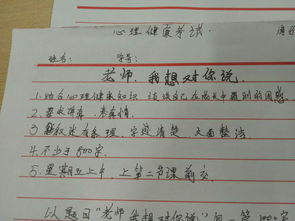 心理健康考试
姓名: 学号:
老师 我想对你说
1.结合心理健康知识 谈谈自己在成长中遇到的困惑
2.要求清真 表真情
3 叙议有条理 字迹清楚 文面整洁
4.不少于800字
5 星期五上午 上第二节课前交
以题目"老师我想对你说"写一篇 字